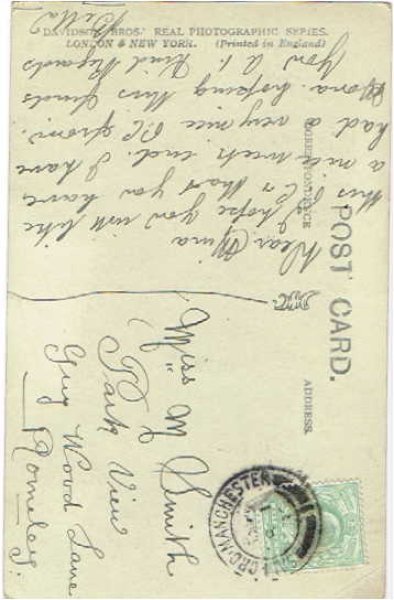 DAVIDSON BROS.' REAL PHOTOGRAPHIC SERIES.
LONDON & NEW YORK. (Printed in England)
POST CARD.
CORRESPONDENCE
ADDRESS.
Dear
I hope you will like
this P.C. & that you have
a nice week end. I have
had a very nice P.C. from
hoping this finds
you A.1. Kind Regards
Bella
Miss M Smith
Park View
Guy Wood Lane
Romeley.
MANCHESTER